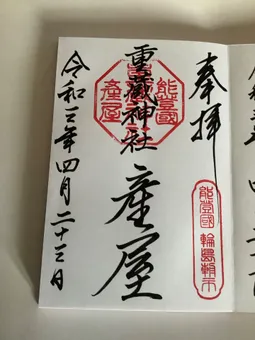 奉拝
能登國 輪島
能登國
産屋
重蔵神社
産屋
令和三年四月二十三日